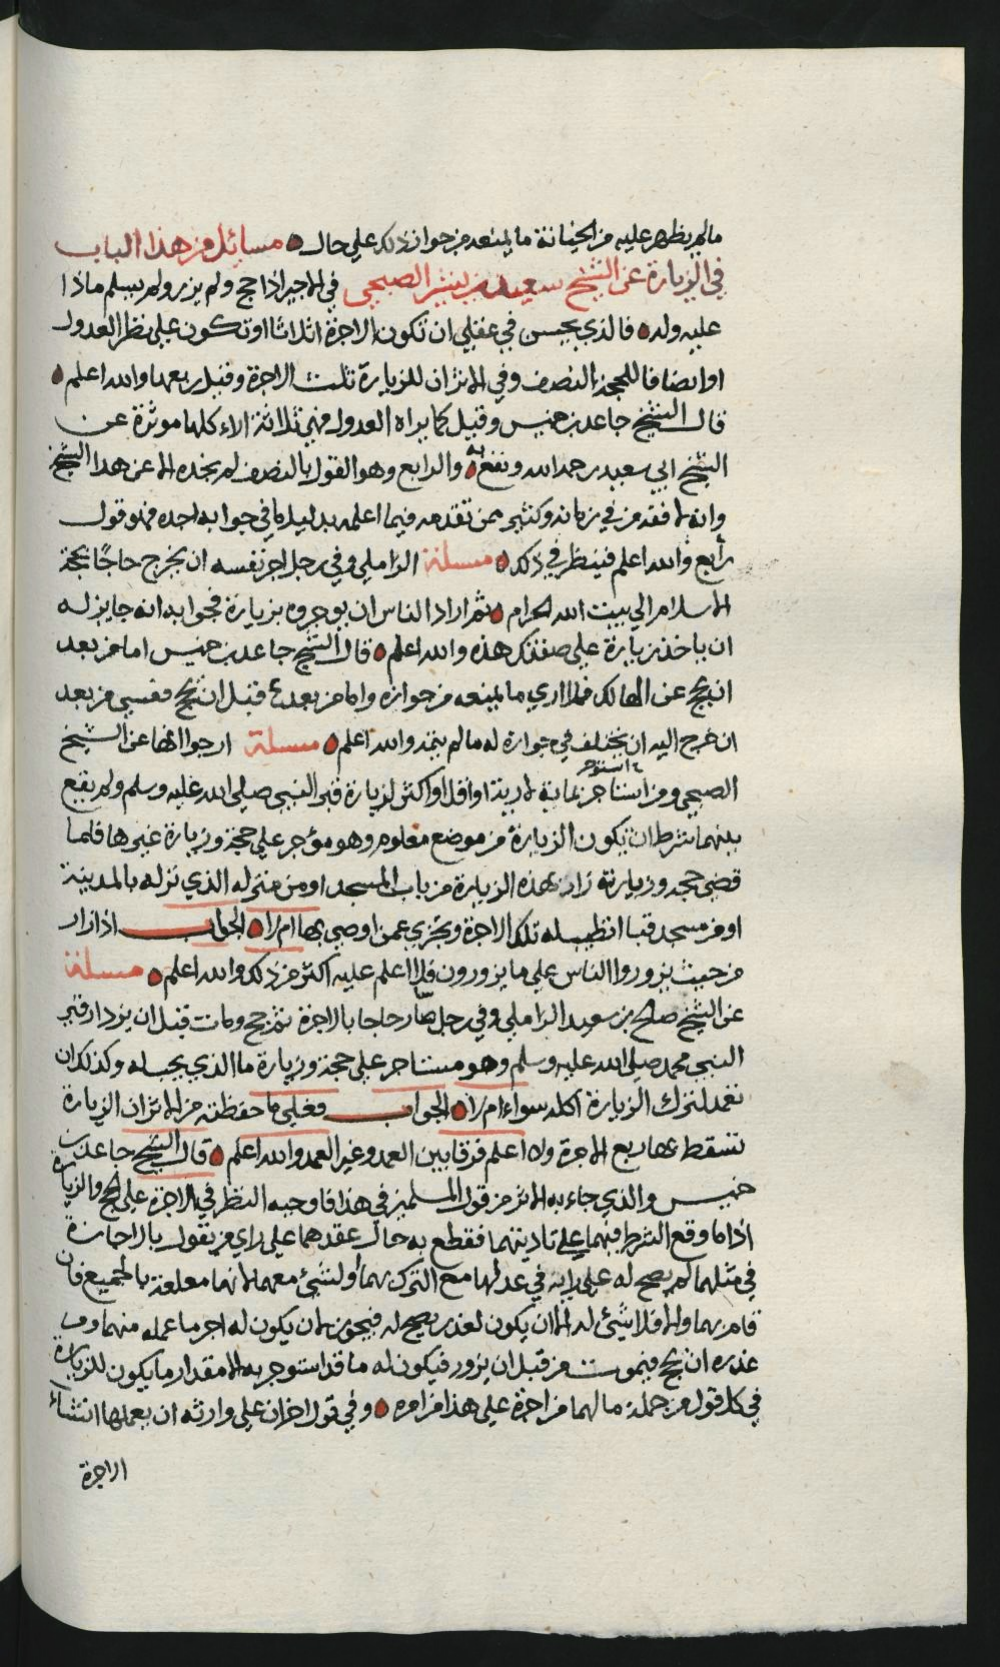 مالم يظهر عليه من الخيانة ما يمنعه من جواز ذلك علي حال ه مسائل من هذا الباب
في الزيارة عن الشيخ سعيد بن بشير الصبحي في الاجير اذا حج ولم يزر ولم يسلم ماذا
عليه وله ه فالذي يحسن في عقلي ان تكون الاجرة اثلاثا او تكون علي نظر العدول
او انصافا للحجة النصف وفي الاثر ان للزيارة ثلث الاجرة وقيل ربعها والله اعلم ه
قال الشيخ جاعد بن خميس وقيل كما يراه العدول فهي ثلاثة الاراء كلها موثرة عن
الشيخ ابي سعيد رحمه الله ونفع به ه والرابع وهو القول بالنصف لم نجده الا عن هذا الشيخ
وانه لافقه من في زمانه وكثير ممن تقدمه فيما اعلمه بدليل ما في جوابه اجده فهو قول
رابع والله اعلم فينظر في ذلك ه مسئلة الزاملي وفي رجل اجر نفسه ان يخرج حاجا بحجة
الاسلام الي بيت الله الحرام ه ثم اراد الناس ان يوجروه بزيارة فجوابه انه جايز له
ان ياخذ زيارة علي صفتك هذه والله اعلم ه قال الشيخ جاعد بن خميس اما من بعد
ان يحج عن الهالك فلا اري ما يمنعه من جوازه واما من بعد قبل ان يحج فعسي من بعد
ان خرج اليه ان يختلف في جوازه له ما لم يتمه والله اعلم ه مسئلة ارجوا انها عن الشيخ
الصبحي ومن استاجر بثمانية لارية او اقل او اكثر لزيارة قبر النبي صلي الله عليه وسلم ولم يقع
بينهما شرط ان تكون الزيارة من موضع معلوم وهو مؤجر علي حجة وزيارة غيرها فلما
قضي حجه وزيارته زار بهذه الزيارة من باب المسجد او من منزله الذي نزله بالمدينة
او من مسجد قبا اتطيب له تلك الاجرة ويجزي عمن اوصي بها ام لا ه الجواب اذا زار
من حيث يزوروا الناس علي ما يزورون فلا اعلم عليه اكثر من ذلك والله اعلم ه مسئلة
عن الشيخ صلح بن سعيد الزاملي وفي رجل صار حاجا بالاجرة ثم حج ومات قبل ان يزور قبر
النبي محمد صلي الله عليه وسلم وهو مستاجر علي حجة وزيارة ما الذي يجب له وكذلك ان
تعمد لترك الزيارة اكله سواء ام لا ه الجواب فعلي ما حفظته من الاثر ان الزيارة
تسقط بها ربع الاجرة ولا اعلم فرقا بين العمد وغير العمد والله اعلم ه قال الشيخ جاعد بن
خميس والذي جاء به الاثر من قول المسلمين في هذا فاوجبه النظر في الاجرة علي الحج والزيارة
اذا ما وقع الشرط فيهما علي تاديتهما فقطع به حال عقدهما علي راي من يقول بالاجازة
في مثلهما لم يصح له علي رايه في عدلها مع الترك بهما او لشئ معهما لانهما معلقة بالجميع فان
قام بهما والا فلا شئ له الا ان يكون لعذر يصح له فيجوز لان يكون له اجر ما عمله منهما ومن
عذره ان يحج فيموت من قبل ان يزور فيكون له ما قد استوجبه الا مقدار ما يكون للزيارة
في كل قول من جملة ما لهما من اجرة علي هذا من امره ه وفي قول اخر ان علي وارثه ان يعملها ان شاء
الاجرة